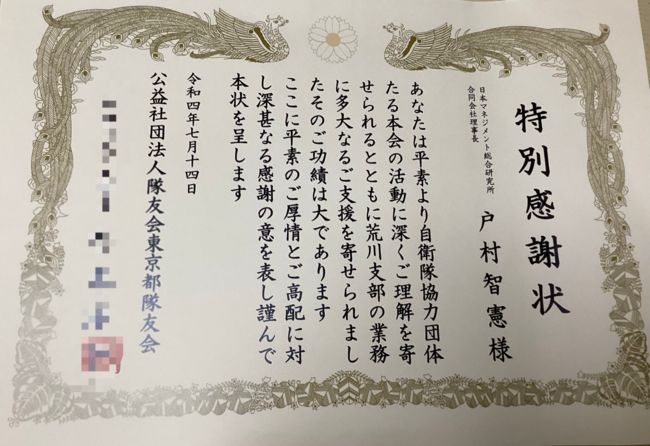 特別感謝状
日本マネジメント総合研究所
合同会社理事長
戸村智憲様
あなたは平素より自衛隊協力団体
たる本会の活動に深くご理解を寄
せられるとともに荒川支部の業務
に多大なるご支援を寄せられまし
たそのご功績は大であります
ここに平素のご厚情とご高配に対
し深甚なる感謝の意を表し謹んで
本状を呈します
令和四年七月十四日
公益社団法人隊友会東京都隊友会